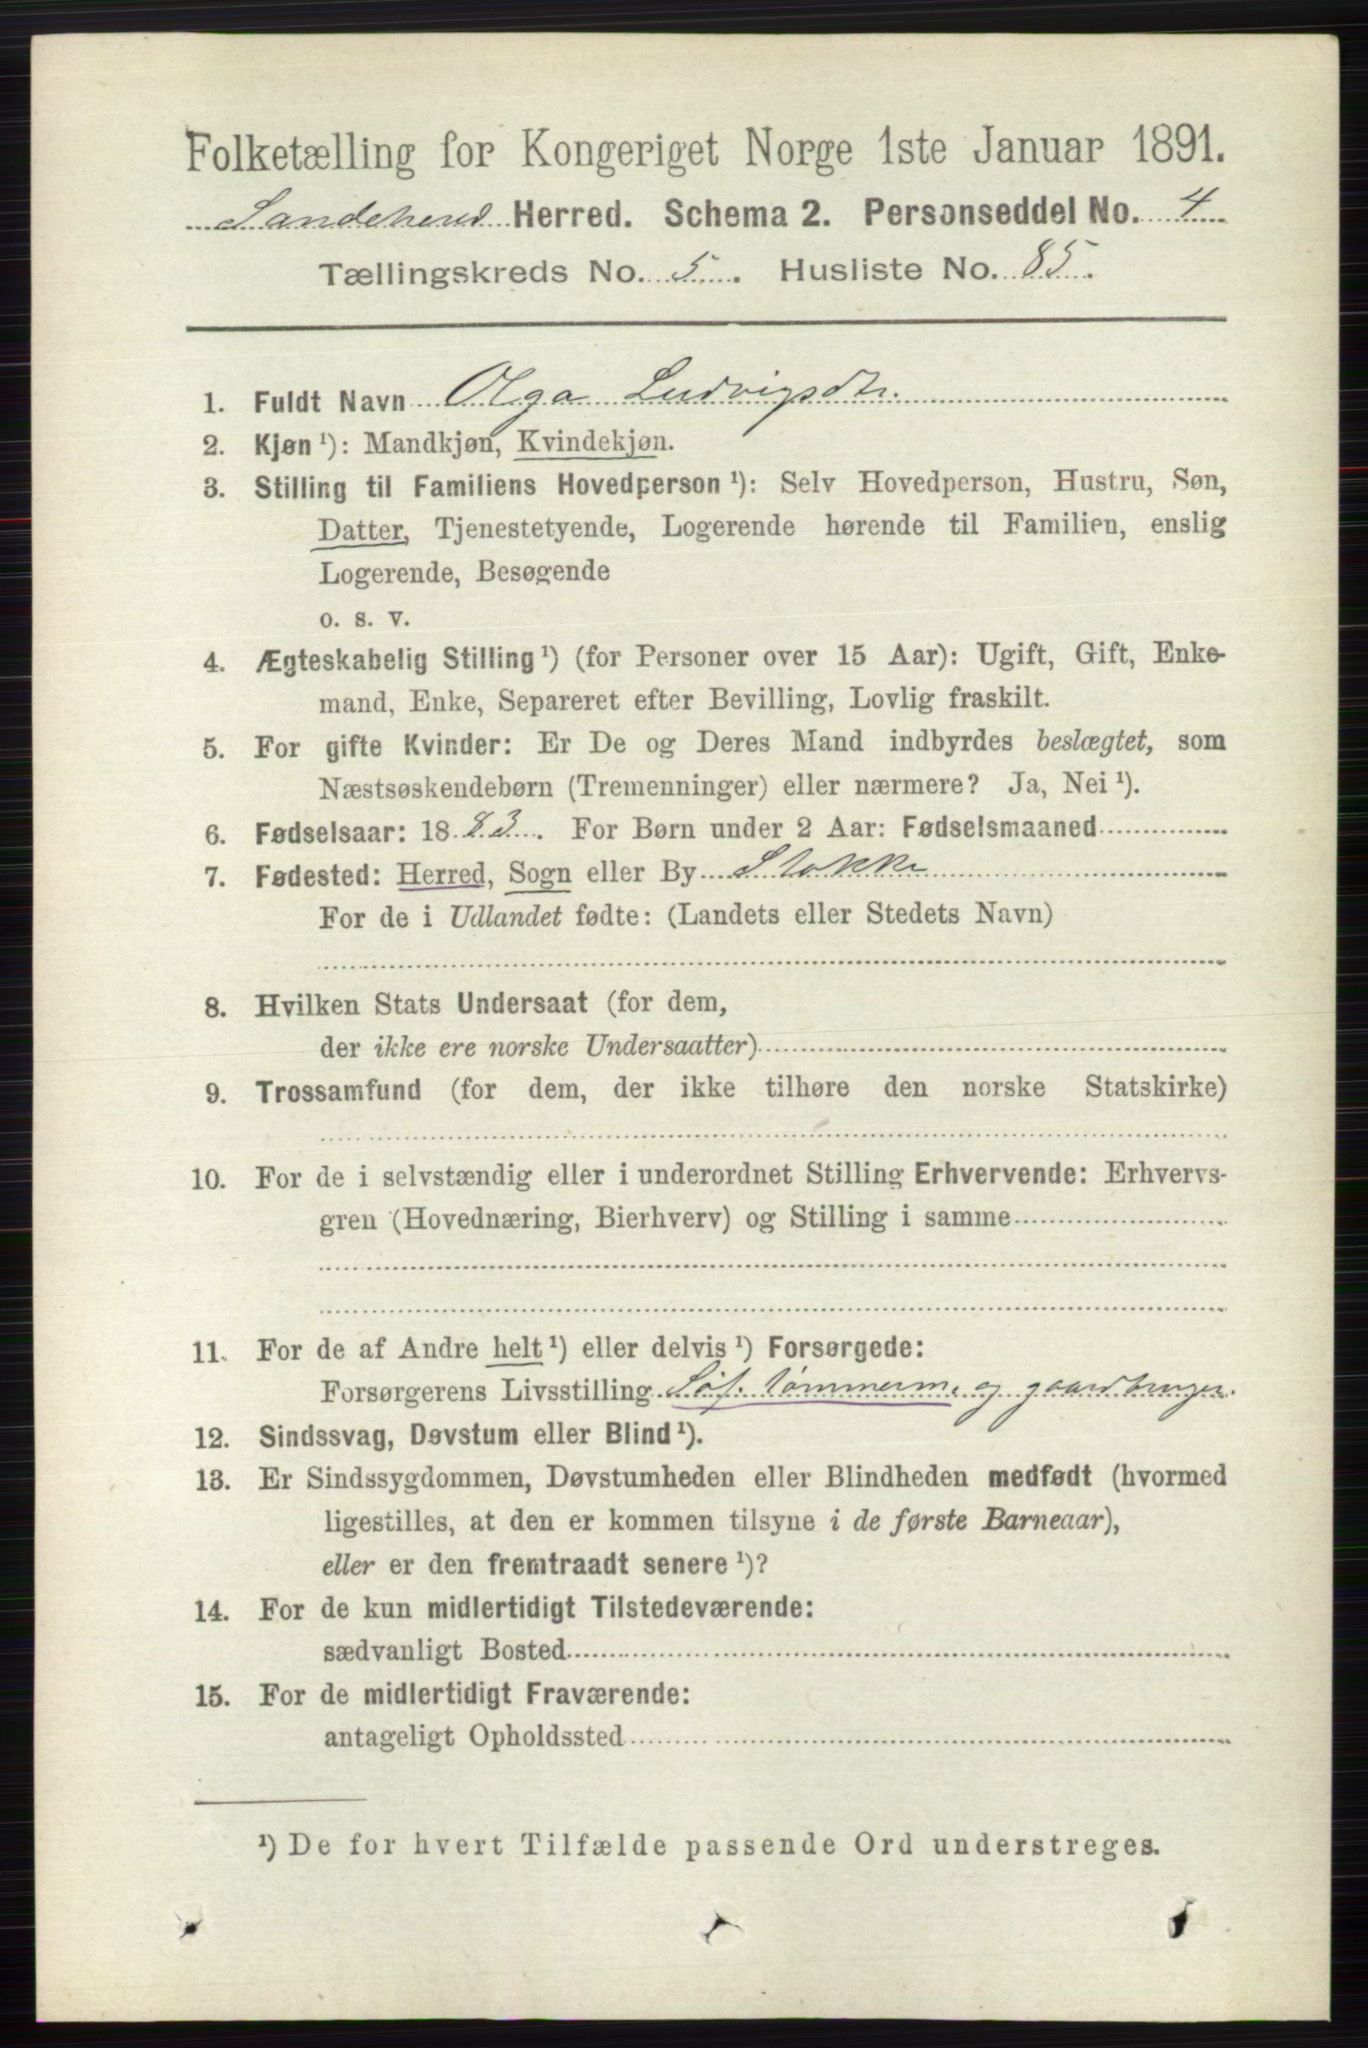 Folketælling for Kongeriget Norge 1ste Januar 1891.
Sandeherred Herred. Schema 2. Personseddel No. 4
Tællingskreds No. 5. Husliste No. 85.
1. Fuldt Navn Olga Ludvigsdtr.
2. Kjøn ¹): Mandkjøn, Kvindekjøn.
3. Stilling til Familiens Hovedperson ¹): Selv Hovedperson, Hustru, Søn,
Datter, Tjenestetyende, Logerende hørende til Familien, enslig
Logerende, Besøgende
o. s. v.
4. Ægteskabelig Stilling ¹) (for Personer over 15 Aar): Ugift, Gift, Enke-
mand, Enke, Separeret efter Bevilling, Lovlig fraskilt.
5. For gifte Kvinder: Er De og Deres Mand indbyrdes beslægtet, som
Næstsøskendebørn (Tremenninger) eller nærmere? Ja, Nei ¹).
6. Fødselsaar: 1883. For Børn under 2 Aar: Fødselsmaaned
7. Fødested: Herred, Sogn eller By Stokke
For de i Udlandet fødte: (Landets eller Stedets Navn)
8. Hvilken Stats Undersaat (for dem,
der ikke ere norske Undersaatter)
9. Trossamfund (for dem, der ikke tilhøre den norske Statskirke)
10. For de i selvstændig eller i underordnet Stilling Erhvervende: Erhvervs-
gren (Hovednæring, Bierhverv) og Stilling i samme
11. For de af Andre helt ¹) eller delvis ¹) Forsørgede:
Forsørgerens Livsstilling Søf. tømmerm. og gaardbruger.
12. Sindssvag, Døvstum eller Blind ¹).
13. Er Sindssygdommen, Døvstumheden eller Blindheden medfødt (hvormed
ligestilles, at den er kommen tilsyne i de første Barneaar),
eller er den fremtraadt senere ¹)?
14. For de kun midlertidigt Tilstedeværende:
sædvanligt Bosted
15. For de midlertidigt Fraværende:
antageligt Opholdssted
¹) De for hvert Tilfælde passende Ord understreges.